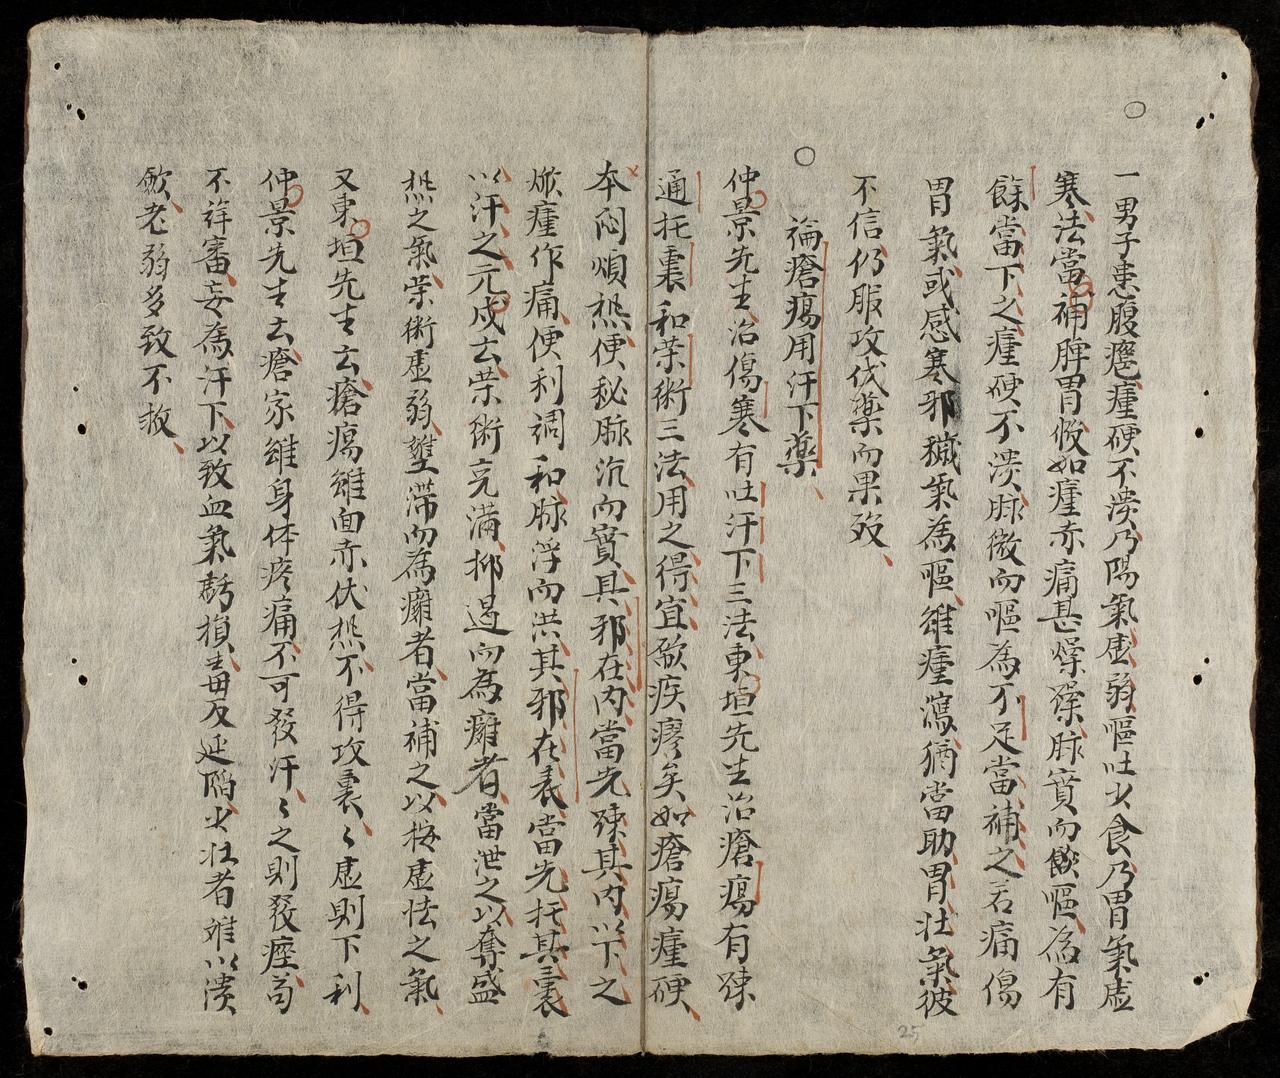 ○
一男子患腹癰瘇硬不潰乃陽氣虛弱嘔吐少食乃胃氣虛
寒法當補脾胃假如瘇赤痛甚煩躁脉實而飲嘔為有
餘當下之瘇硬不潰脉微而嘔為不足當補之若痛傷
胃氣或感寒邪穢氣為嘔雖瘇瀉猶當助胃壯氣彼
不信仍服攻伐藥而果歿
○
論瘡瘍用汗下藥
仲景先生治傷寒有吐汗下三法東垣先生治瘡瘍有疎
通托裏和荣衛三法用之得宜厥疾瘳矣如瘡瘍瘇硬
本闷煩热便秘脉沉而實其邪在内當先疎其内以下之
焮瘇作痛便利調和脉浮而洪其邪在表當先托其裏
以汗之元戎云荣衛充滿抑遏而為癰者當泄之以奪盛
热之氣荣衛虛弱壅滞而為癰者當補之以接虛怯之氣
又東垣先生云瘡瘍雖面赤伏热不得攻裏〻虛則下利
仲景先生云瘡家雖身体疼痛不可發汗〻之則發痙苟
不詳審妄為汗下以致血氣虧損毒反延陷少壯者难以潰
斂老弱多致不救
25